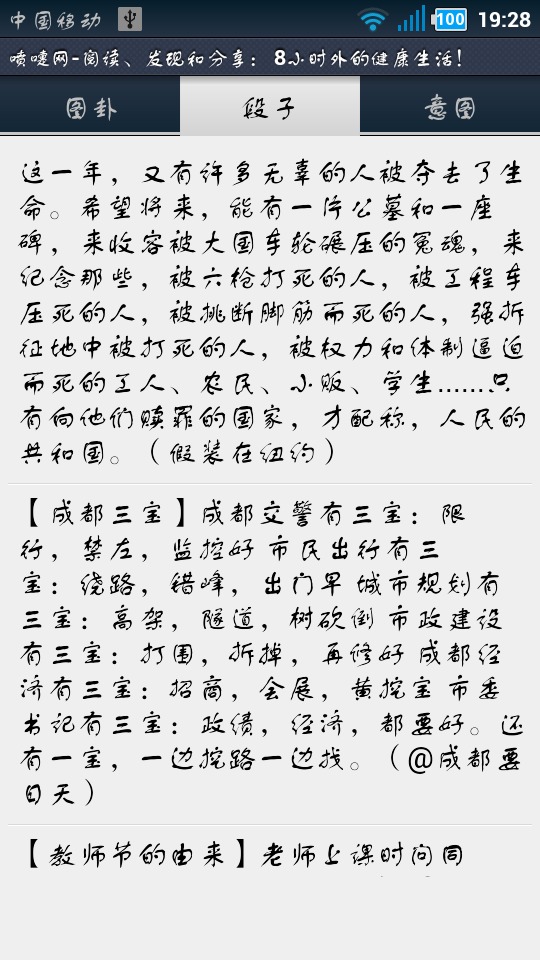 中国移动 100 19:28
喷嚏网-阅读、发现和分享：8小时外的健康生活!
图卦 段子 意图
这一年，又有许多无辜的人被夺去了生
命。希望将来，能有一片公墓和一座
碑，来收容被大国车轮碾压的冤魂，来
纪念那些，被六枪打死的人，被工程车
压死的人，被挑断脚筋而死的人，强拆
征地中被打死的人，被权力和体制逼迫
而死的工人、农民、小贩、学生……只
有向他们赎罪的国家，才配称，人民的
共和国。（假装在纽约）
【成都三宝】成都交警有三宝：限
行，禁左，监控好 市民出行有三
宝：绕路，错峰，出门早 城市规划有
三宝：高架，隧道，树砍倒 市政建设
有三宝：打围，拆掉，再修好 成都经
济有三宝：招商，会展，黄挖宝 市委
书记有三宝：政绩，经济，都要好。还
有一宝，一边挖路一边找。（@成都要
日天）
【教师节的由来】老师上课时问同